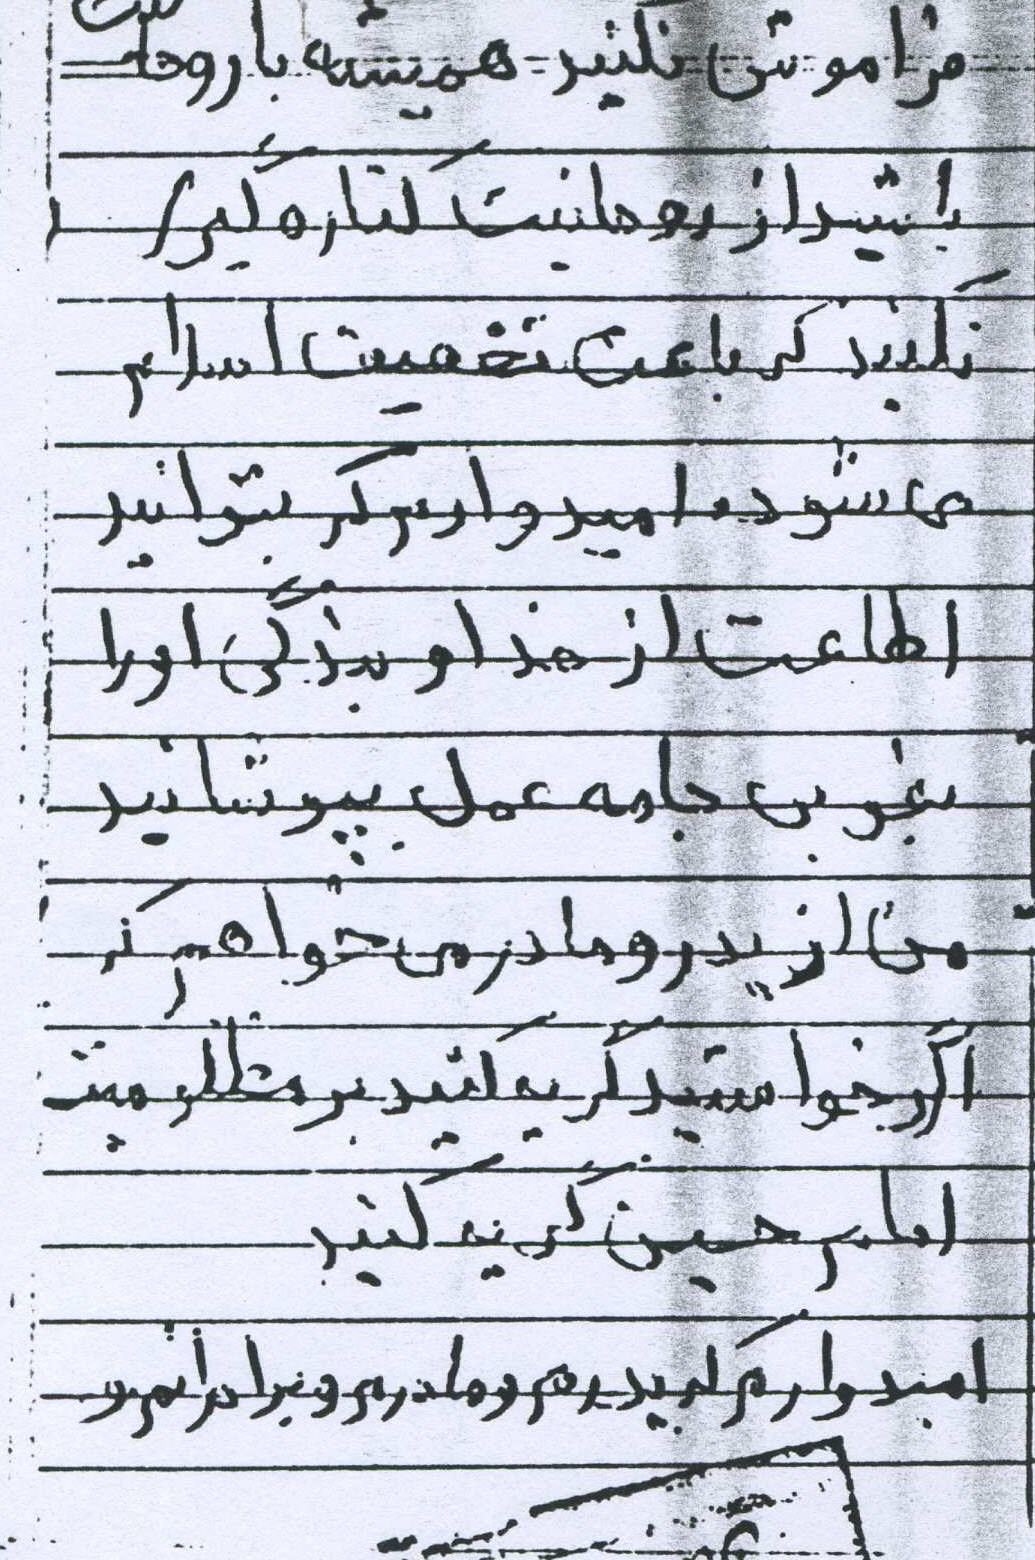 فراموش نکنید - همیشه با روحانیت
باشید از روحانیت کناره گیری
نکنید که باعث تضعیف اسلام
می شود امیدوارم که بتوانید
اطاعت از خدا و بندگی او را
بخوبی جامه عمل بپوشانید
من از پدر و مادرم می خواهم که
اگر خواستید گریه کنید بر مظلومیت
امام حسین گریه کنید
امیدوارم که پدرم و مادرم و برادرانم و